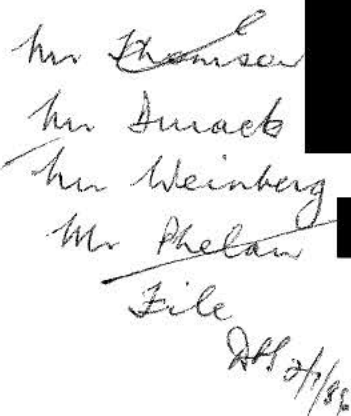 Mr Thomson
Mr Durack
Mr Weinberg
Mr Phelan
File